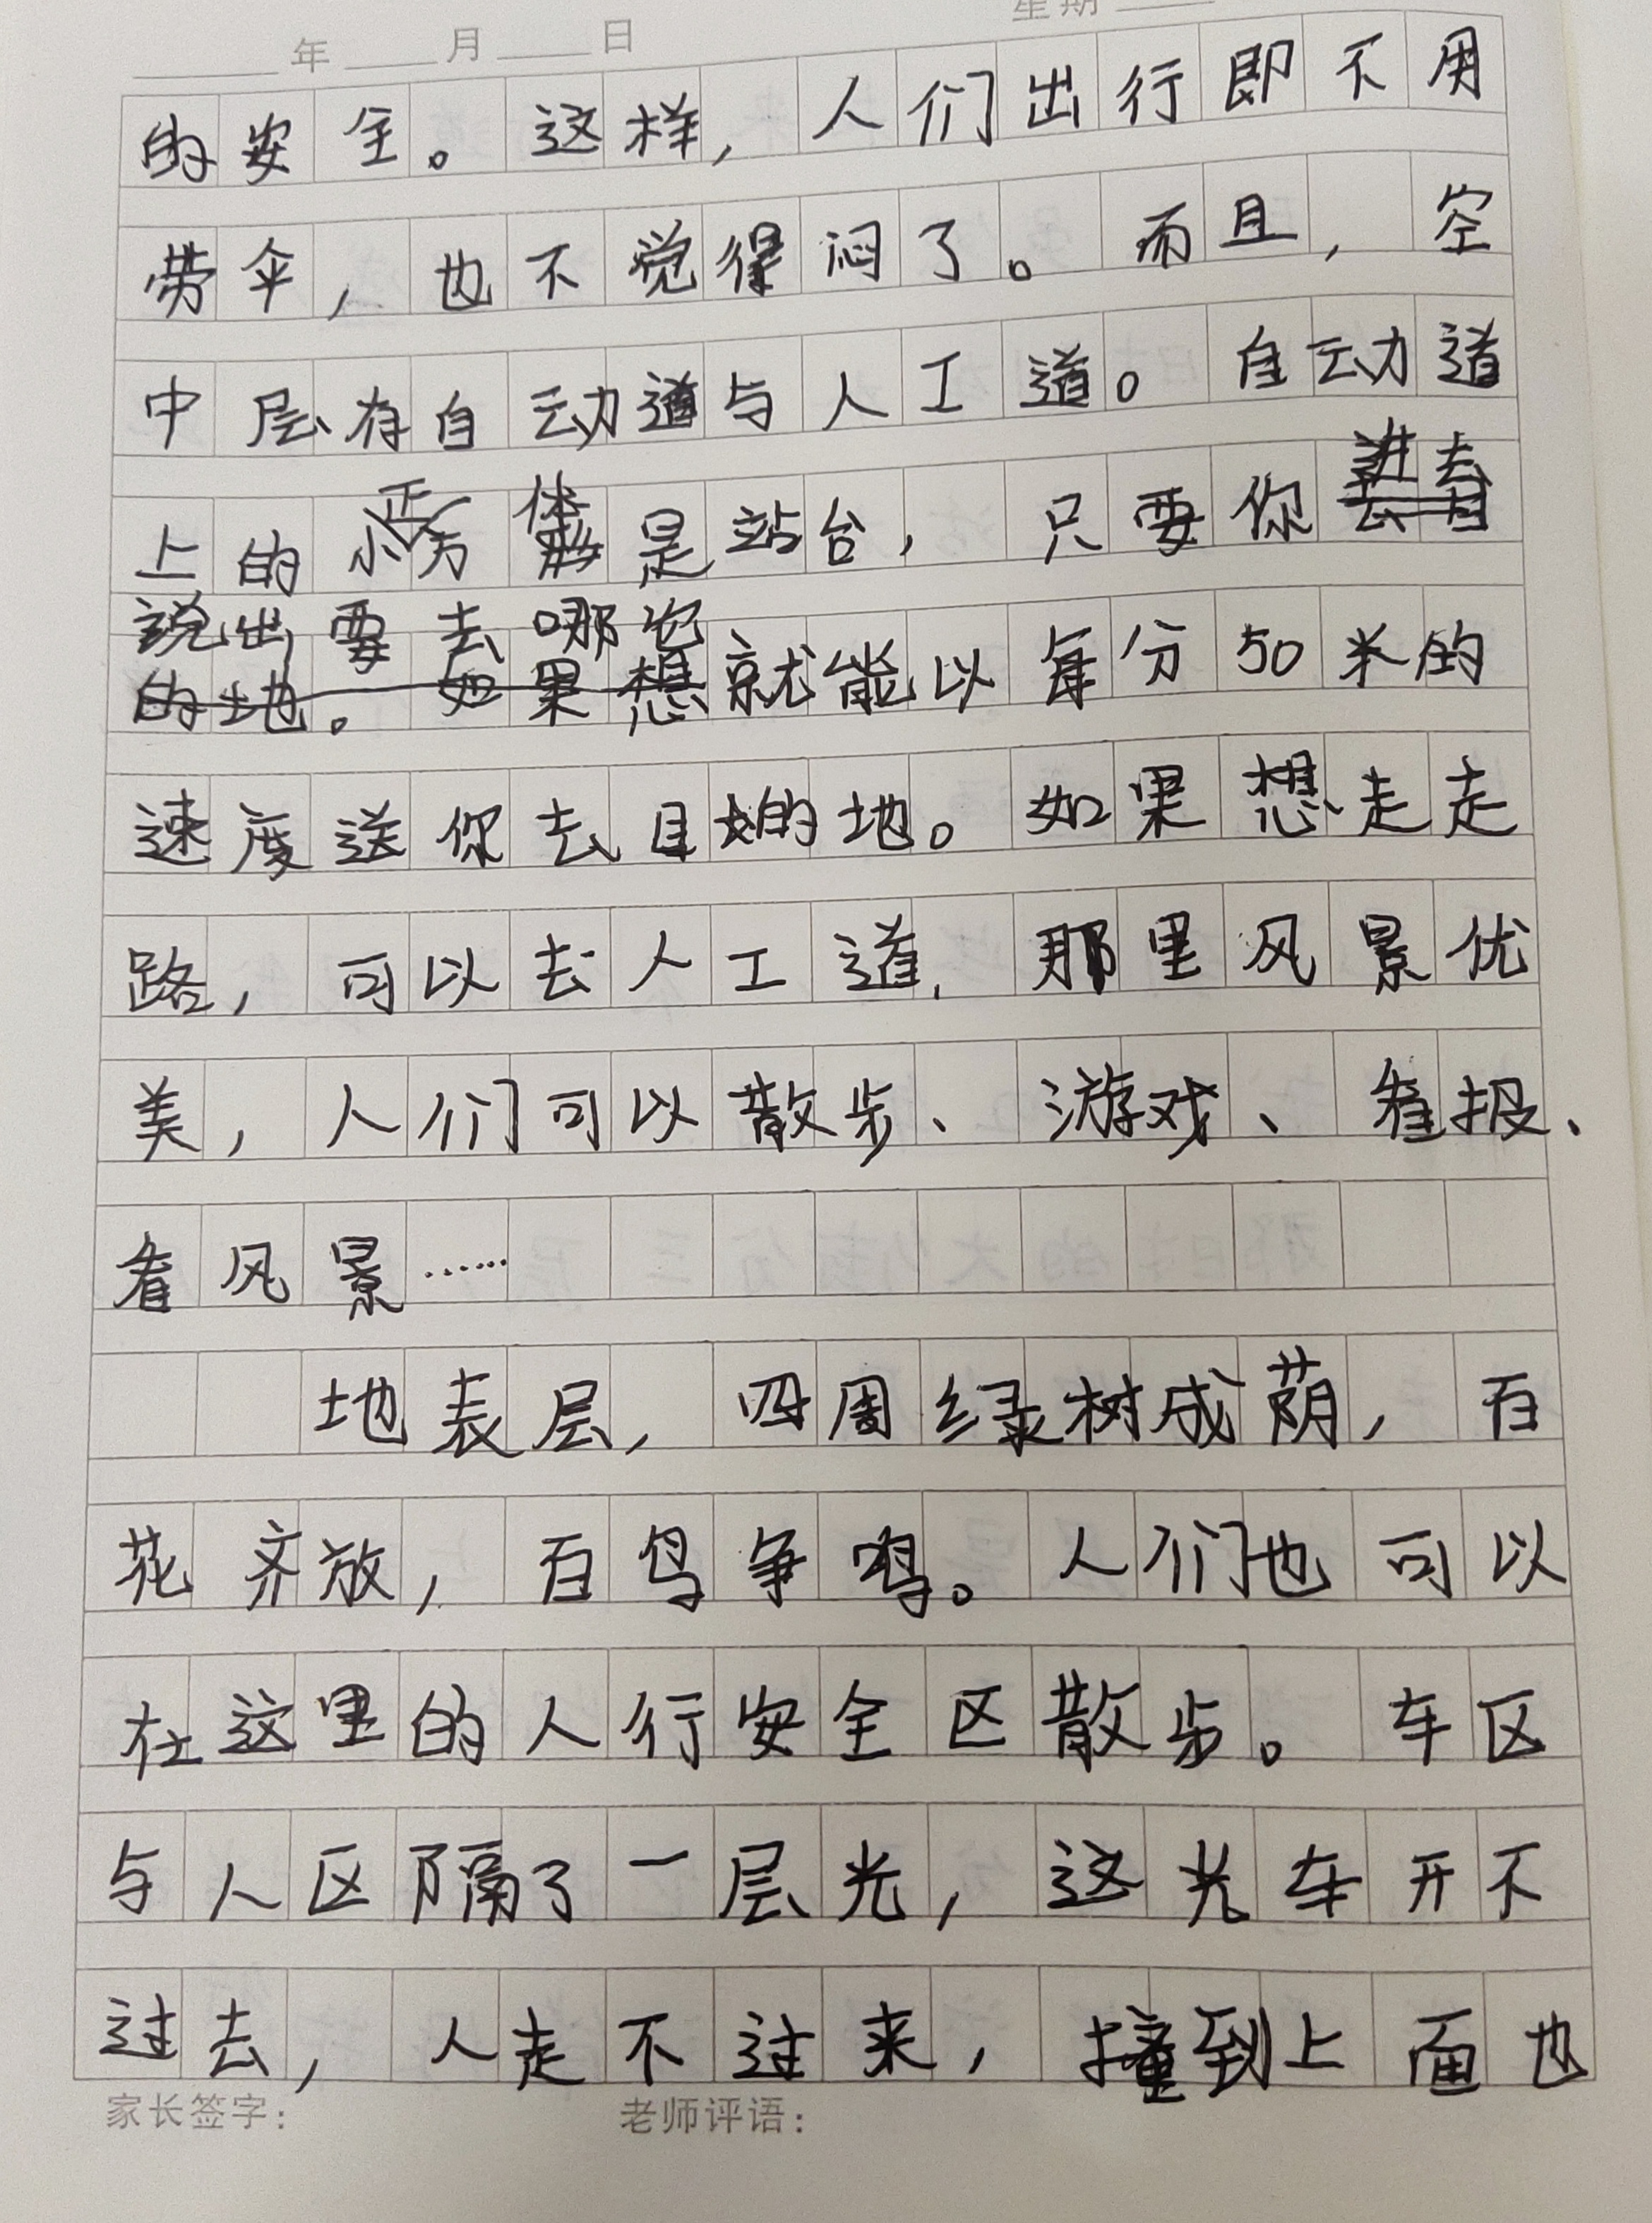 星期
年 月 日
的安全。这样，人们出行即不用
带伞，也不觉得闷了。而且，空
中层有自动道与人工道。自动道
上的小正方体是站台，只要你进去
说出要去哪，就能以每分50米的
速度送你去目的地。如果想走走
路，可以去人工道，那里风景优
美，人们可以散步、游戏、看报、
看风景……
地表层，四周绿树成荫，百
花齐放，百鸟争鸣。人们也可以
在这里的人行安全区散步。车区
与人区隔了一层光，这光车开不
过去，人走不过来，撞到上面也
家长签字：
老师评语：